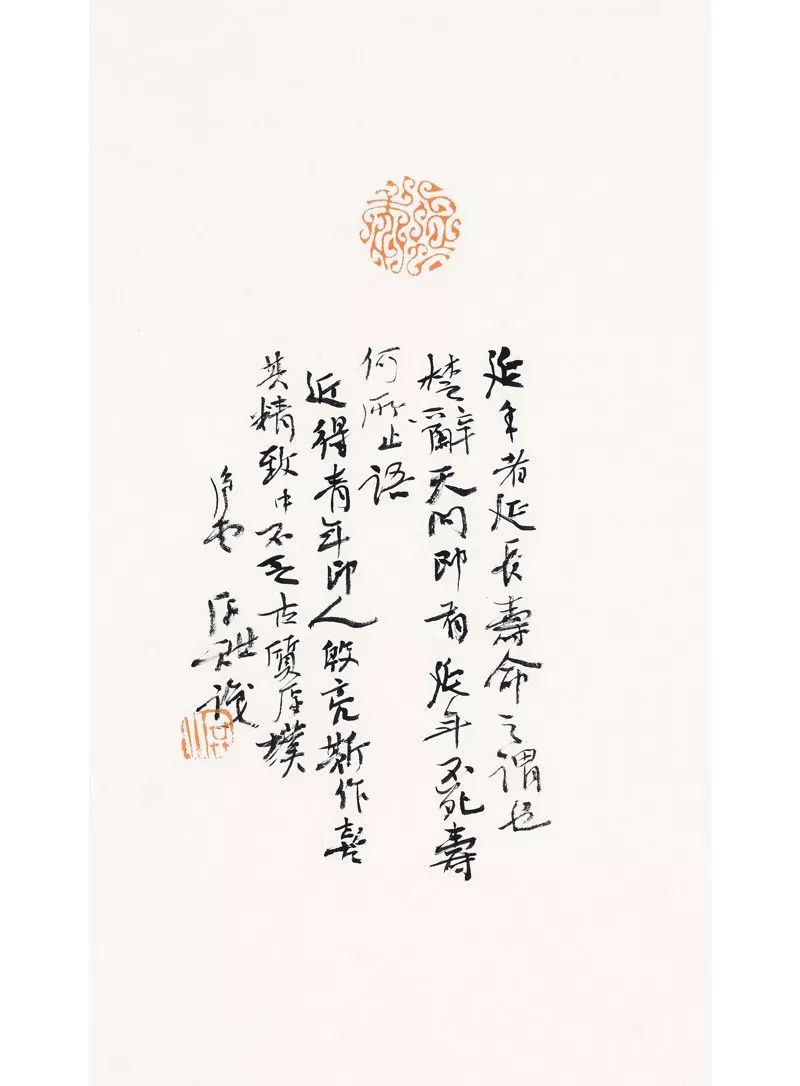 延年者延長壽命之謂也
楚辭天問即有延年不死壽
何所止語
近得青年印人殷亮斯作喜
其精致中不乏古質厚樸
識